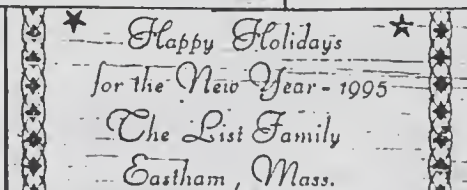 Happy Holidays
for the New Year - 1995
The List Family
Eastham, Mass.